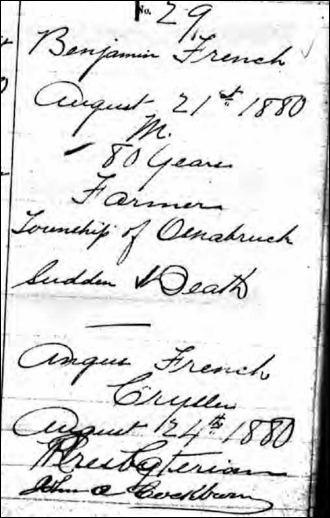 No. 29
Benjamin French
August 21st 1880
M.
80 Years
Farmer
Township of Osnabruck
Sudden Death
Angus French
August 24th 1880
Presbyterian
John A Cockburn